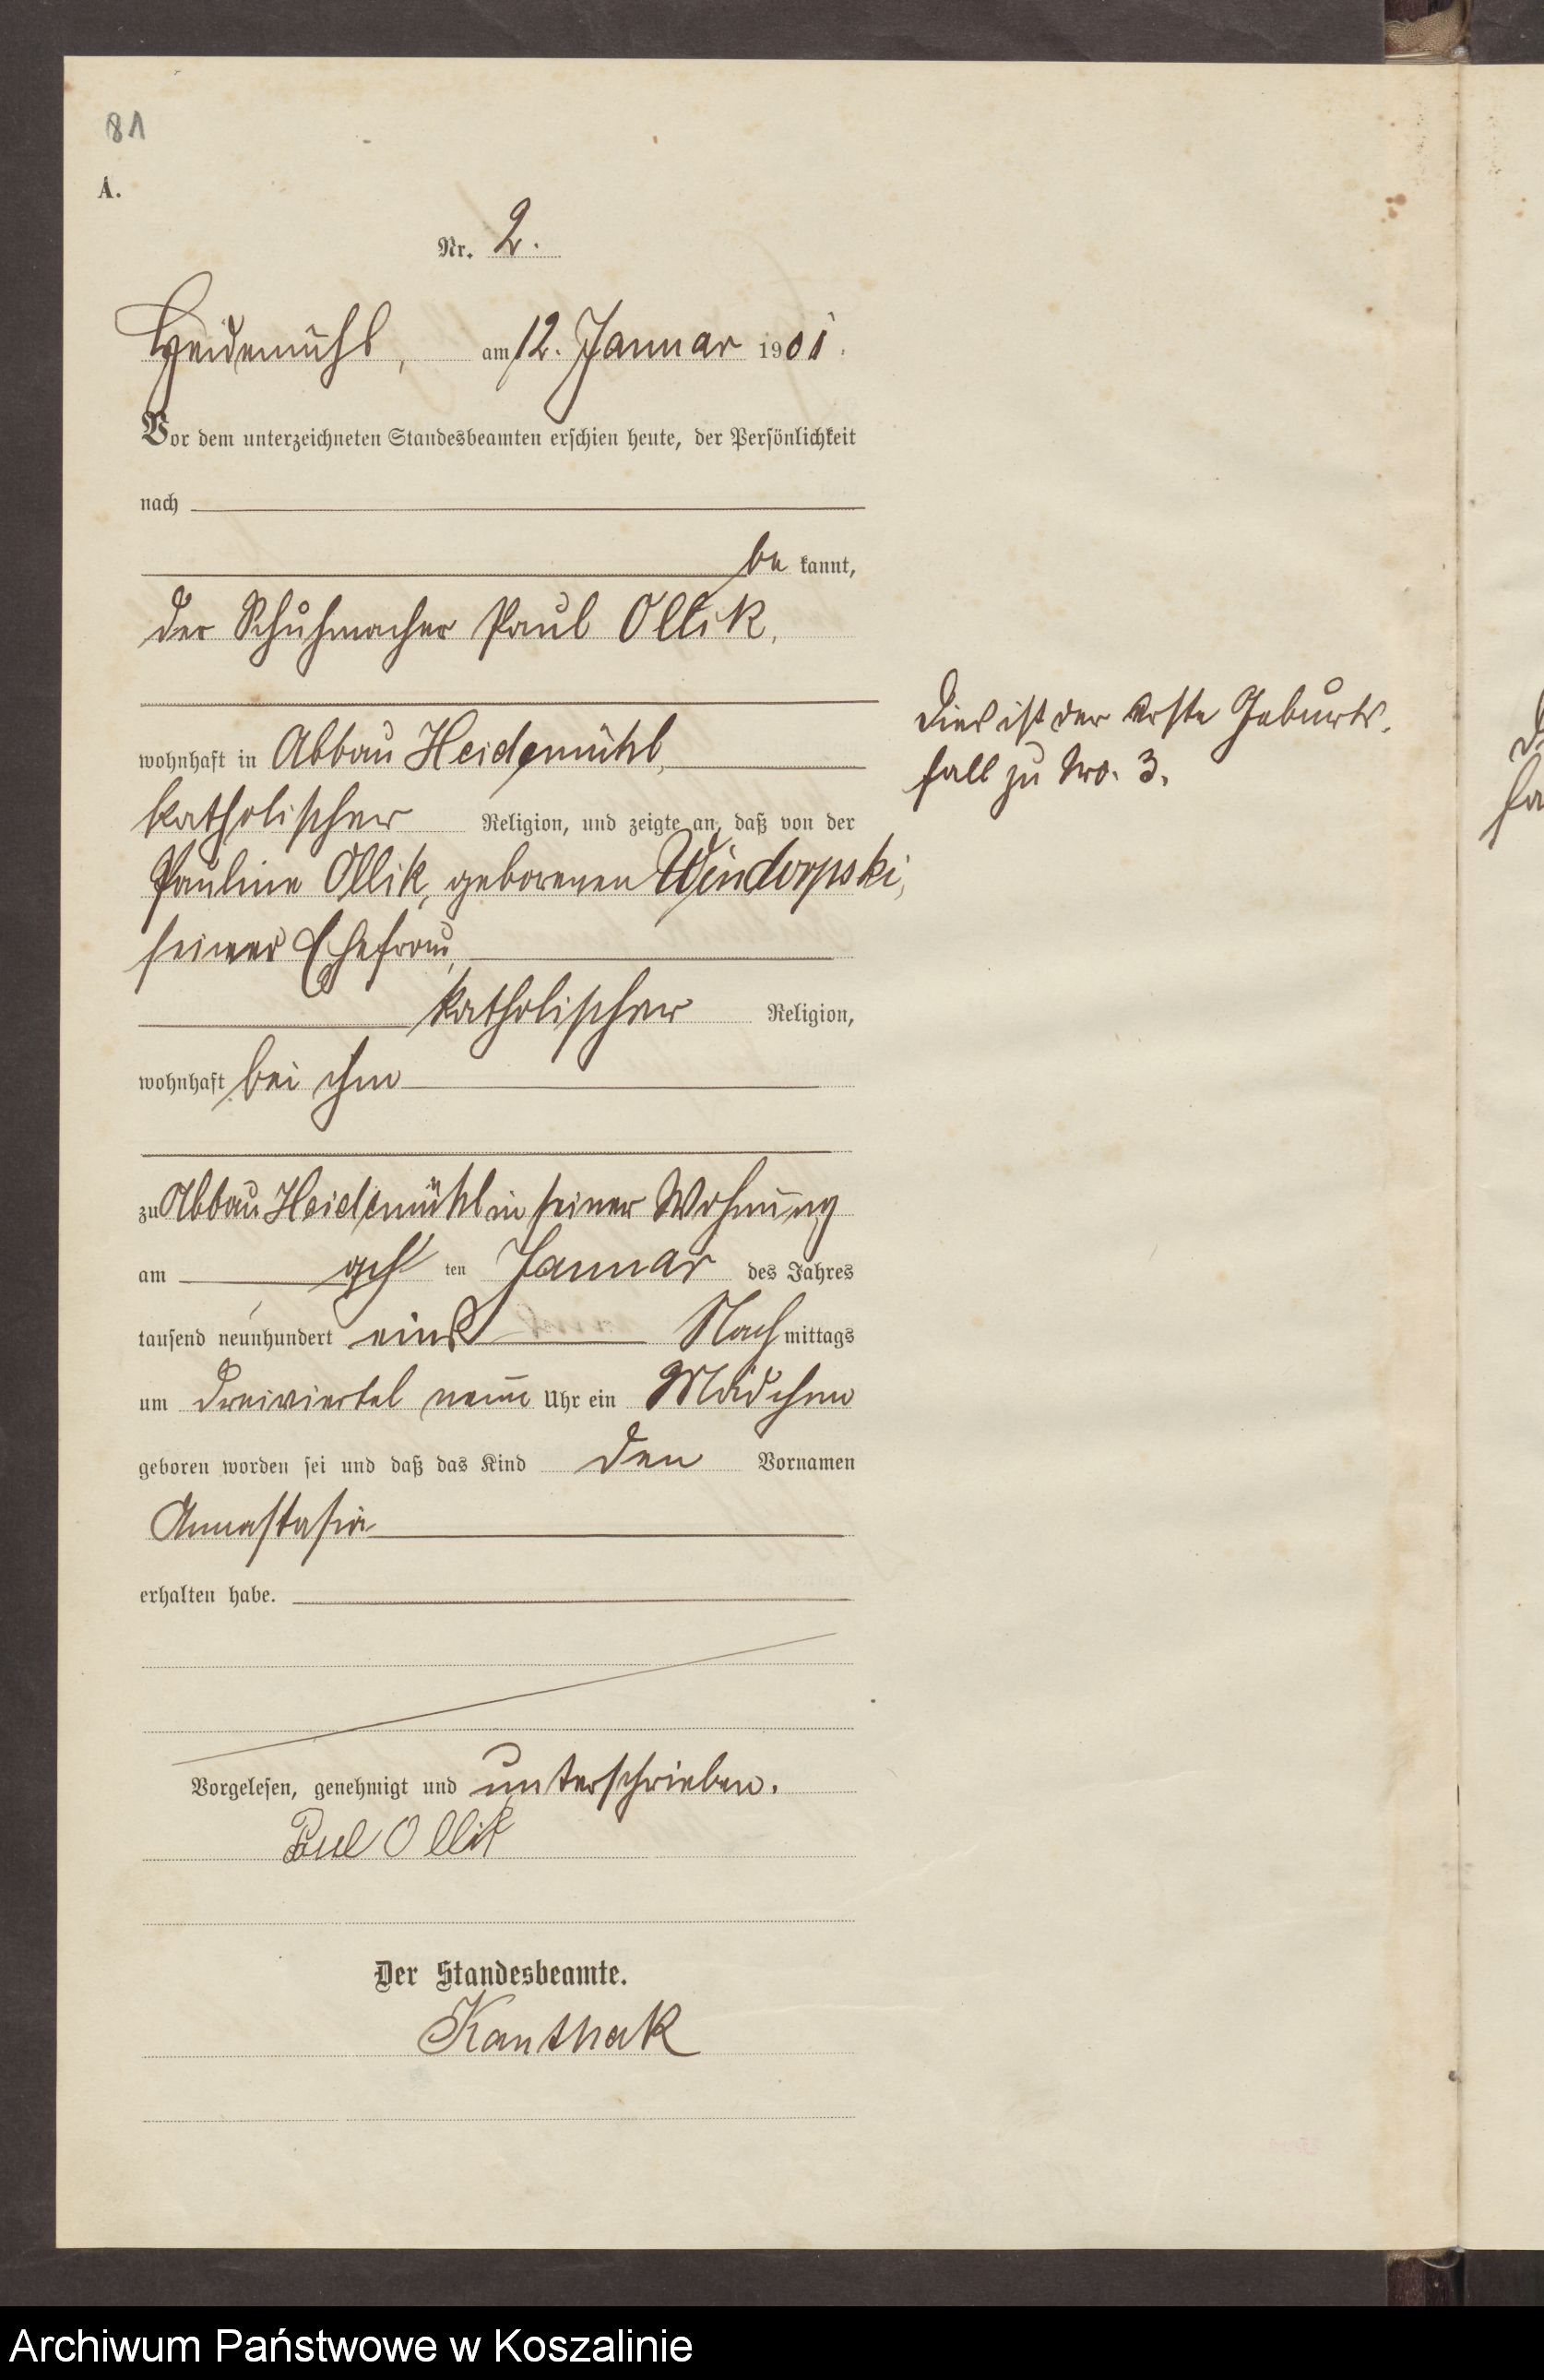 81
A.
Nr. 2.
Heidemühl, am 12. Januar 1901.
Vor dem unterzeichneten Standesbeamten erschien heute, der Persönlichkeit
nach
be kannt,
der Schuhmacher Paul Ollik,
wohnhaft in Abbau Heidemühl,
katholischer Religion, und zeigte an, daß von der
Pauline Ollik, geborenen
seiner Ehefrau,
katholischer Religion,
wohnhaft bei ihm
zu Abbau Heidemühl in seiner Wohnung
am acht ten Januar des Jahres
tausend neunhundert eins Nach mittags
um dreiviertel neun Uhr ein Mädchen
geboren worden sei und daß das Kind den Vornamen
Annastasia
erhalten habe.
Vorgelesen, genehmigt und unterschrieben.
Paul Ollik
Der Standesbeamte.
Kanthak
Dies ist der erste Geburts-
fall zu Nro. 3.
Archiwum Państwowe w Koszalinie